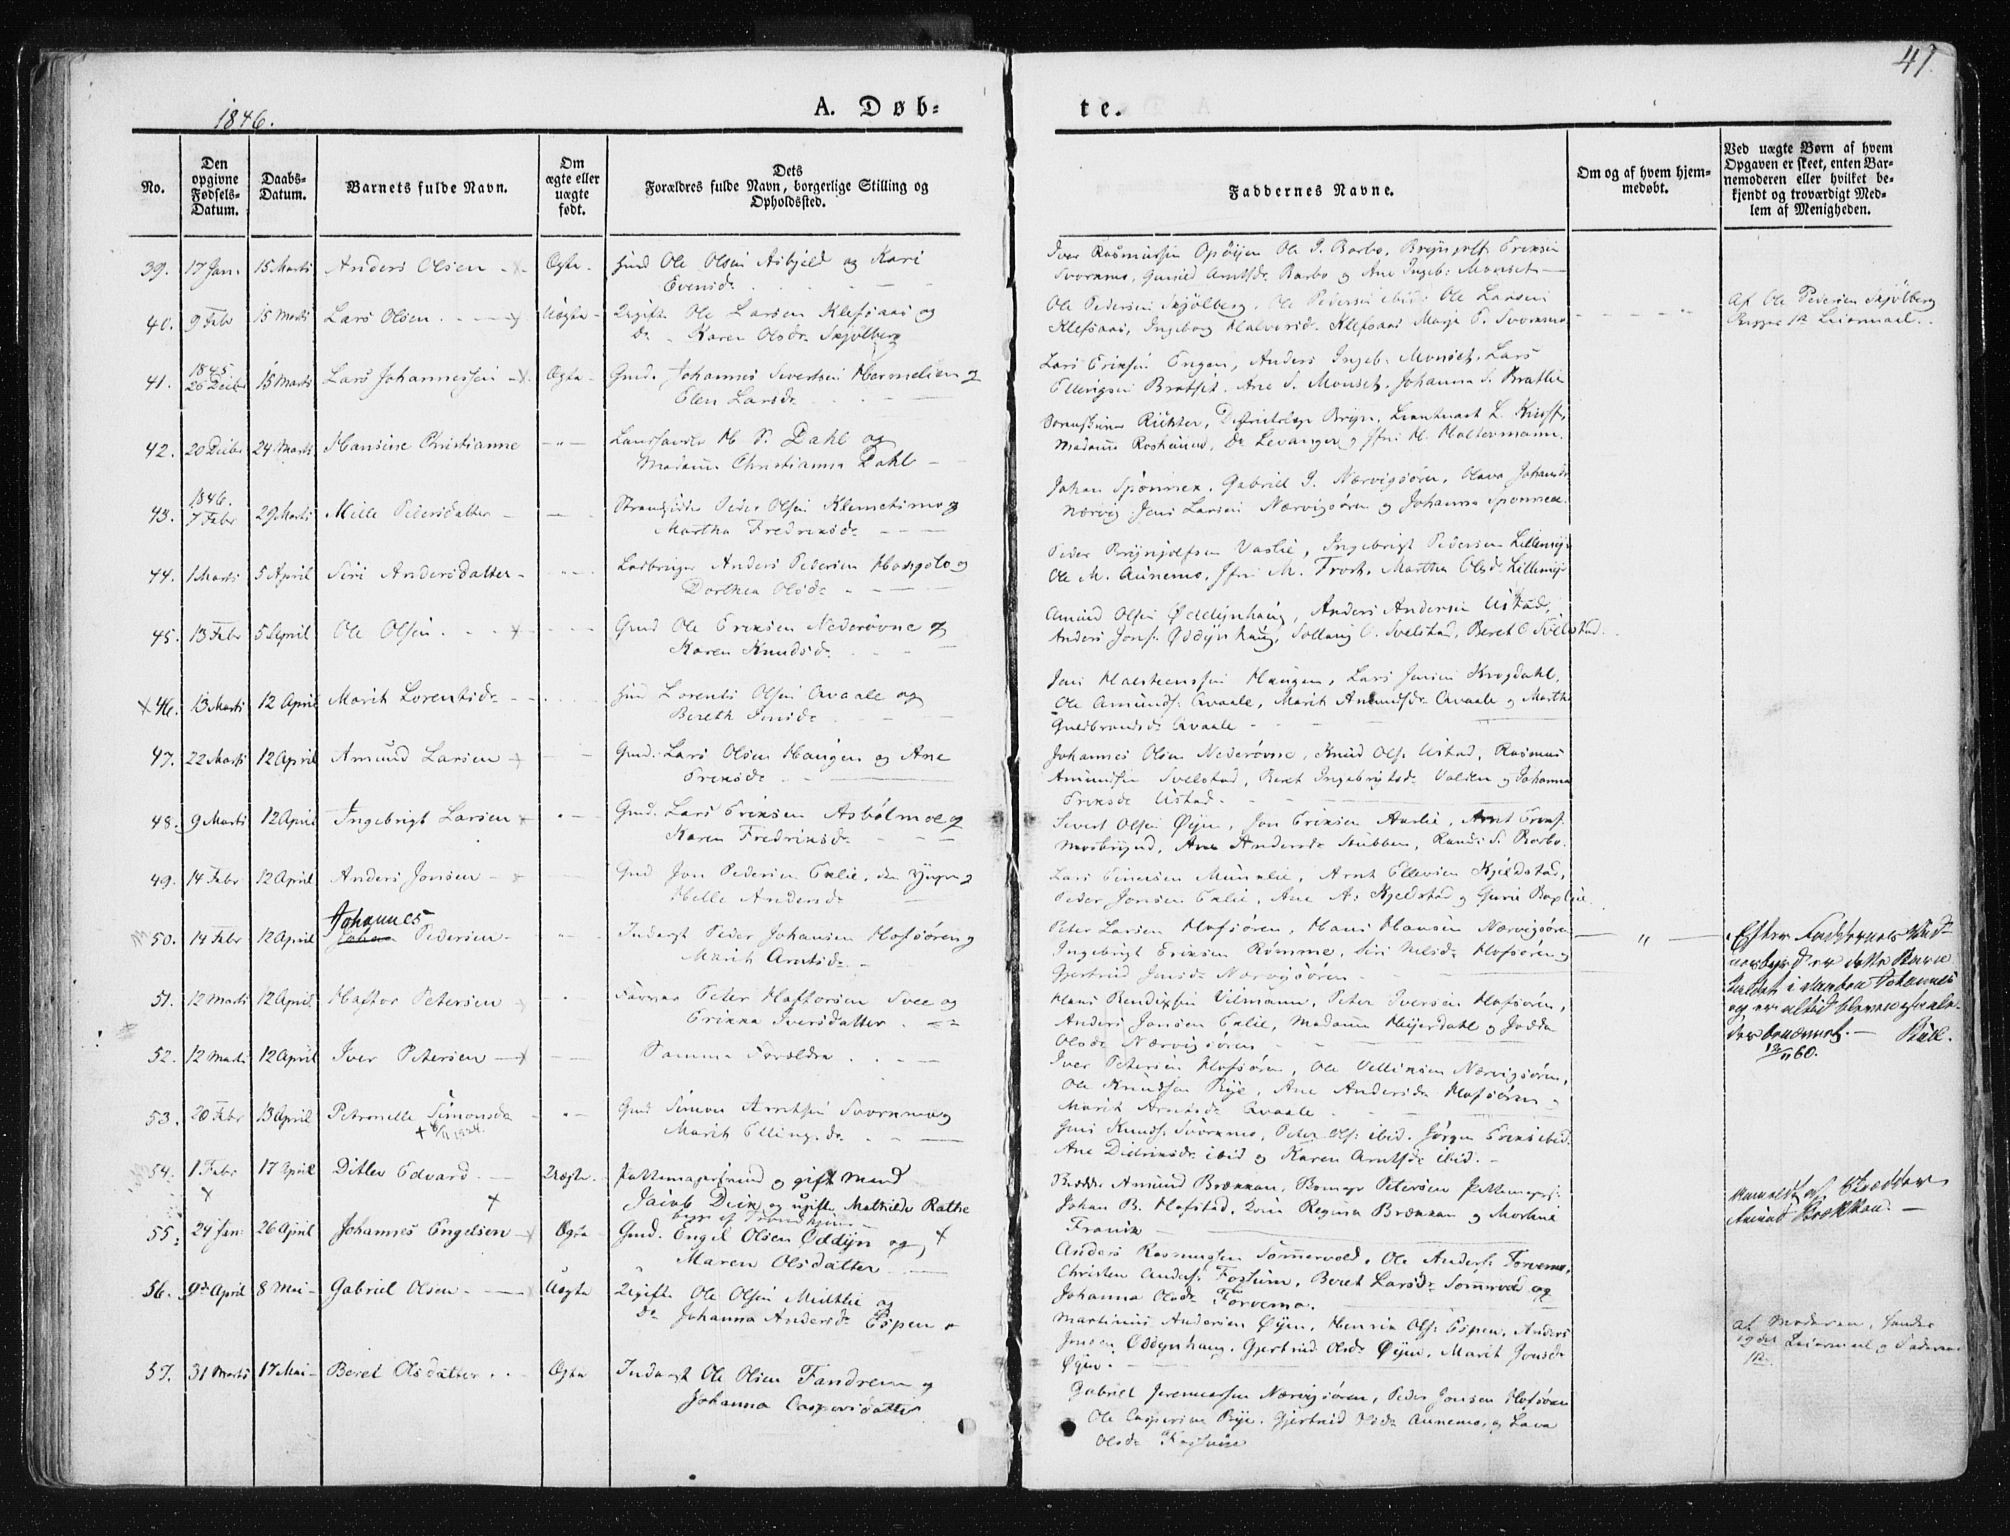 47.
1846.
A. Døb=
te.
No.
Den opgivne Fødsels-Datum.
Daabs-Datum.
Barnets fulde Navn.
Om ægte eller uægte født.
Dets Forældres fulde Navn, borgerlige Stilling og Opholdssted.
Faddernes Navne.
Om og af hvem hjemmedøbt.
Ved uægte Børn af hvem Opgaven er skeet, enten Barnemoderen eller hvilket bekjendt og troværdigt Medlem af Menigheden.
39. 17 Jan. 15 Marts Anders Olsen Ægte Ole Olsen Asbjeld og Kari
Evensdr
Iver Rasmussen Opøien Ole I. Barbo, Brynjolf Eriksen
Svorkmo, Gunild Arntsdr Barbo og Ane Ingeb. Monset
40. 9 Febr 15 Marts Lars Olsen Uægte Ole Larsen Klefsaas og
Do Karen Olsdr Skjølberg
Ole Pedersen Skjølberg, Ole Pedersen ibid. Ole Larsen
Klefsaas, Ingeborg Halvorsd. Klefsaas Marja P. Svorkmo
Af Ole Pedersen Skjølberg
Leiermaal
41. 1845 26 Decbr 15 Marts Lars Johannessen Ægte Gmd. Johannes Sivertsen Hermelien og
Elen Larsdr
Lars Eriksen Engen, Anders Ingeb. Monset, Lars
Ellevsen Bratset, Ane S. Monset, Johanna S. Bratlie
42. 20 Decbr 24 Marts Hansine Christianne H. P. Dahl og
Madame Christianna Dahl
Richter, Districtslæge Bryn, Lieutnant L. Krefft,
Madame Do Levanger og H. Haltermann.
43. 1846. 7 Febr 29 Marts Mille Pedersdatter Strandsidder Peder Olsen Klemetsmo og
Martha Fredriksdr
Johan Gabriel I. Nærvigsøren, Olava Johansdr
Nærvig, Jens Larsen Nærvigsøren og Johanna
44. 1 Marts 5 April Siri Andersdatter Anders Pedersen og
Dorthea Olsdr
Peder Brynjolfsen Vaslie, Ingebrigt Pedersen
Ole M. Aunemo, M. Frost, Martha Olsdr
45. 13 Febr 5 April Ole Olsen Gmd Ole Eriksen Nederøvne og
Karen Knudsdr.
Amund Olsen Oddynhaug, Anders Andersen Ustad,
Anders Jonsen Oddynhaug, Solloug O. Svelstad, Beret O Svelstad.
46. 13 Marts 12 April Marit Lorentsdr Lorents Olsen Qvaale og
Bereth Jensdr
Jens Halstensen Haugen, Lars Jensen Krogdahl,
Ole Amunds. Qvaale, Marit Amundsdr Qvaale og Martha
Guldbrandsdr Qvaale
47. 22 Marts 12 April Amund Larsen Gmd. Lars Olsen Haugen og Ane
Eriksdr
Johannes Olsen Nederøvne, Knud Ols. Ustad, Rasmus
Amundsen Svelstad, Beret Ingebrigtsdr Volden og Johanna
Eriksdr Ustad.
48. 9 Marts 12 April Ingebrigt Larsen Gmd. Lars Eriksen Asbølmoe og
Karen Fredriksdr
Sivert Olsen Øyen, Jon Eriksen Aaslie, Arnt
Ane Andersdr Stubben, Randi S. Barbo.
49. 14 Febr 12 April Anders Jonsen Gmd Jon Pedersen Eklie, den yngre og
Helle Andersdr
Lars Einersen Munklie, Arnt Ellevsen Kjeldstad,
Peder Jonsen Eklie, Ane A. Kjeldstad og Guri
50. 14 Febr 12 April Johannes
Pedersen Inderst Peder Johansen Hofsøren og
Marit Arntsdr
Peter Larsen Hofsøren, Hans Hansen Nærvigsøren
Ingebrigt Eriksen Rømme, Siri Nelsdr Hofsøren og
Gjertrud Jensdr Nærvigsøren
Efter Faddernes
er dette Barn
kaldet i Daaben Johannes
og er altid
benævnt. Bull.
12/11 60.
51. 12 Marts 12 April Haftor Petersen Farver Peter Haftorsen Svee og
Erikka Iversdatter
Hans Bendixsen Vilmann, Peter Iversen Hofsøren,
Anders Jonsen Eklie, Madame Heyerdahl og
Olsdr Nærvigsøren
52. 12 Marts 12 April Iver Petersen Samme Forældre
Iver Petersen Hofsøren, Ole Nærvigsøren,
Ole Knudsen Rye, Ane Andersdr Hofsøren
Marit Arntsdr Qvaale
53. 20 Febr 13 April Petronelle Simonsdr
+ 8/11 1924.
Gmd Simon Arntsen Svorkmo og
Marit Ellingsdr
Jens Knuds. Svorkmo, Peter Ols. ibid. Jørgen Eriks ibid.
Ane Didriksdr ibid og Karen Arntsdr ibid.
54. 1 Febr 17 April Ditlev Edvard Uægte og gift Mand
Jacob og ugifte Mathilde Rathe
begge af Trondhjem
Amund Brækkan, Petersen
Johan B. Hofstad, Regina Brækkan og
Anmeldt af
Amund Brækkan.
55. 24 Jan 26 April Johannes Engelsen Ægte Gmd. Engel Olsen Oddyn og
Maren Olsdatter
Anders Rasmussen Sommervold, Ole Anders. Forvemo,
Christen Anders. Fossum, Beret Larsdr Sommervold og
Johanna Olsdr Forvemo.
56. 9de April 8 Mai Gabriel Olsen Uægte Ugifte Ole Olsen og
Do Johanna Andersdr Espen
Martinus Andersen Øyen, Henrik Ols. Espen, Anders
Jonsen Oddynhaug, Gjertrud Olsdr Øyen, Marit Jonsdr
Øyen
af Moderen,
Leiermaal og Faderens
57. 31 Marts 17 Mai Beret Olsdatter Ægte Inderst Ole Olsen Fandrem og
Johanna Caspersdatter
Gabriel Jeremiassen Nærvigsøren, Peder Jonsen Hofsøren
Ole Caspersen Rye, Gjertrud Aunemo, og
Olsdr Fossum